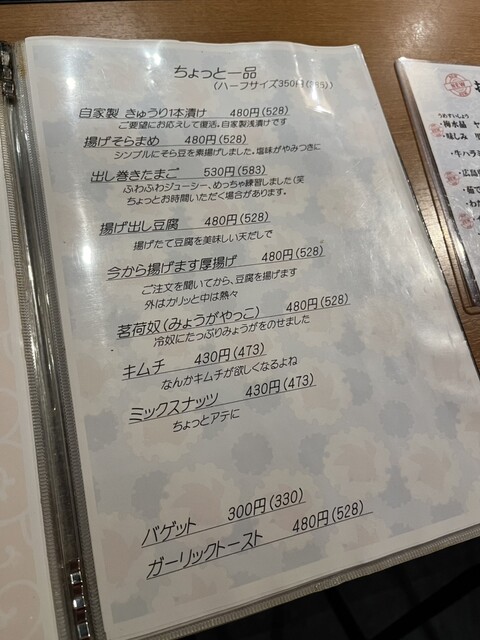 ちょっと一品
(ハーフサイズ350円(385))
自家製 きゅうり1本漬け 480円(528)
ご要望にお応えして復活。自家製浅漬けです
揚げそらまめ 480円(528)
シンプルにそら豆を素揚げしました。塩味がやみつきに
出し巻きたまご 530円(583)
ふわふわジューシー、めっちゃ練習しました(笑
ちょっとお時間いただく場合があります。
揚げ出し豆腐 480円(528)
揚げたて豆腐を美味しい天だしで
今から揚げます厚揚げ 480円(528)
ご注文を聞いてから、豆腐を揚げます
外はカリッと中は熱々
茗荷奴(みょうがやっこ) 480円(528)
冷奴にたっぷりみょうがをのせました
キムチ 430円(473)
なんかキムチが欲しくなるよね
ミックスナッツ 430円(473)
ちょっとアテに
バゲット 300円(330)
ガーリックトースト 480円(528)
うめすいしょう
・梅水晶
味しみ
・牛ハラミ
・広島
・茹で
・わた